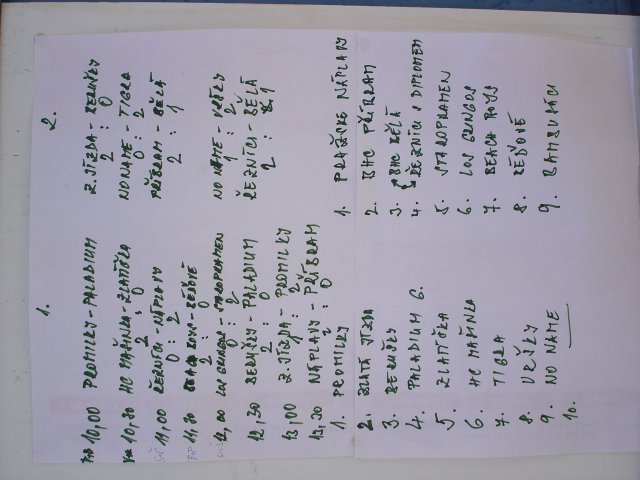 1. 2.
10,00 PROMILKY - PALADIUM Z. JÍZDA - BERUŠKY
2 : 0
10,30 HC MAŠINKA - ZLATÍČKA NO NAME - TIGRA
2 : 0 0 : 2
11,00 ŘEZNÍCI - NÁPLAVY PŘÍBRAM - BĚLÁ
0 : 2 2 : 1
11,30 BEACH BOYS - BÉĎOVÉ
2 : 0
12,00 LOS GRINGOS - STAROPRAMEN NO NAME - VRŠKY
0 : 2 1 : 2
12,30 BERUŠKY - PALADIUM ŘEZNÍCI - BĚLÁ
2 : 0 2 : 1
13,00 Z. JÍZDA - PROMILKY
1 : 2
13,30 NÁPLAVY - PŘÍBRAM
2 : 0
1. PROMILKY 1. PRAŽSKÉ NÁPLAVY
2. ZLATÁ JÍZDA 2. BHC PŘÍBRAM
3. BERUŠKY 3. BHC BĚLÁ
4. PALADIUM 6. 4. ŘEZNÍCI S DIPLOMEM
5. ZLATÍČKA 5. STAROPRAMEN
6. HC MAŠINKA 6. LOS GRINGOS
7. TIGRA 7. BEACH BOYS
8. VRŠKY 8. BÉĎOVÉ
9. NO NAME 9. BAMBULÁCI
10.